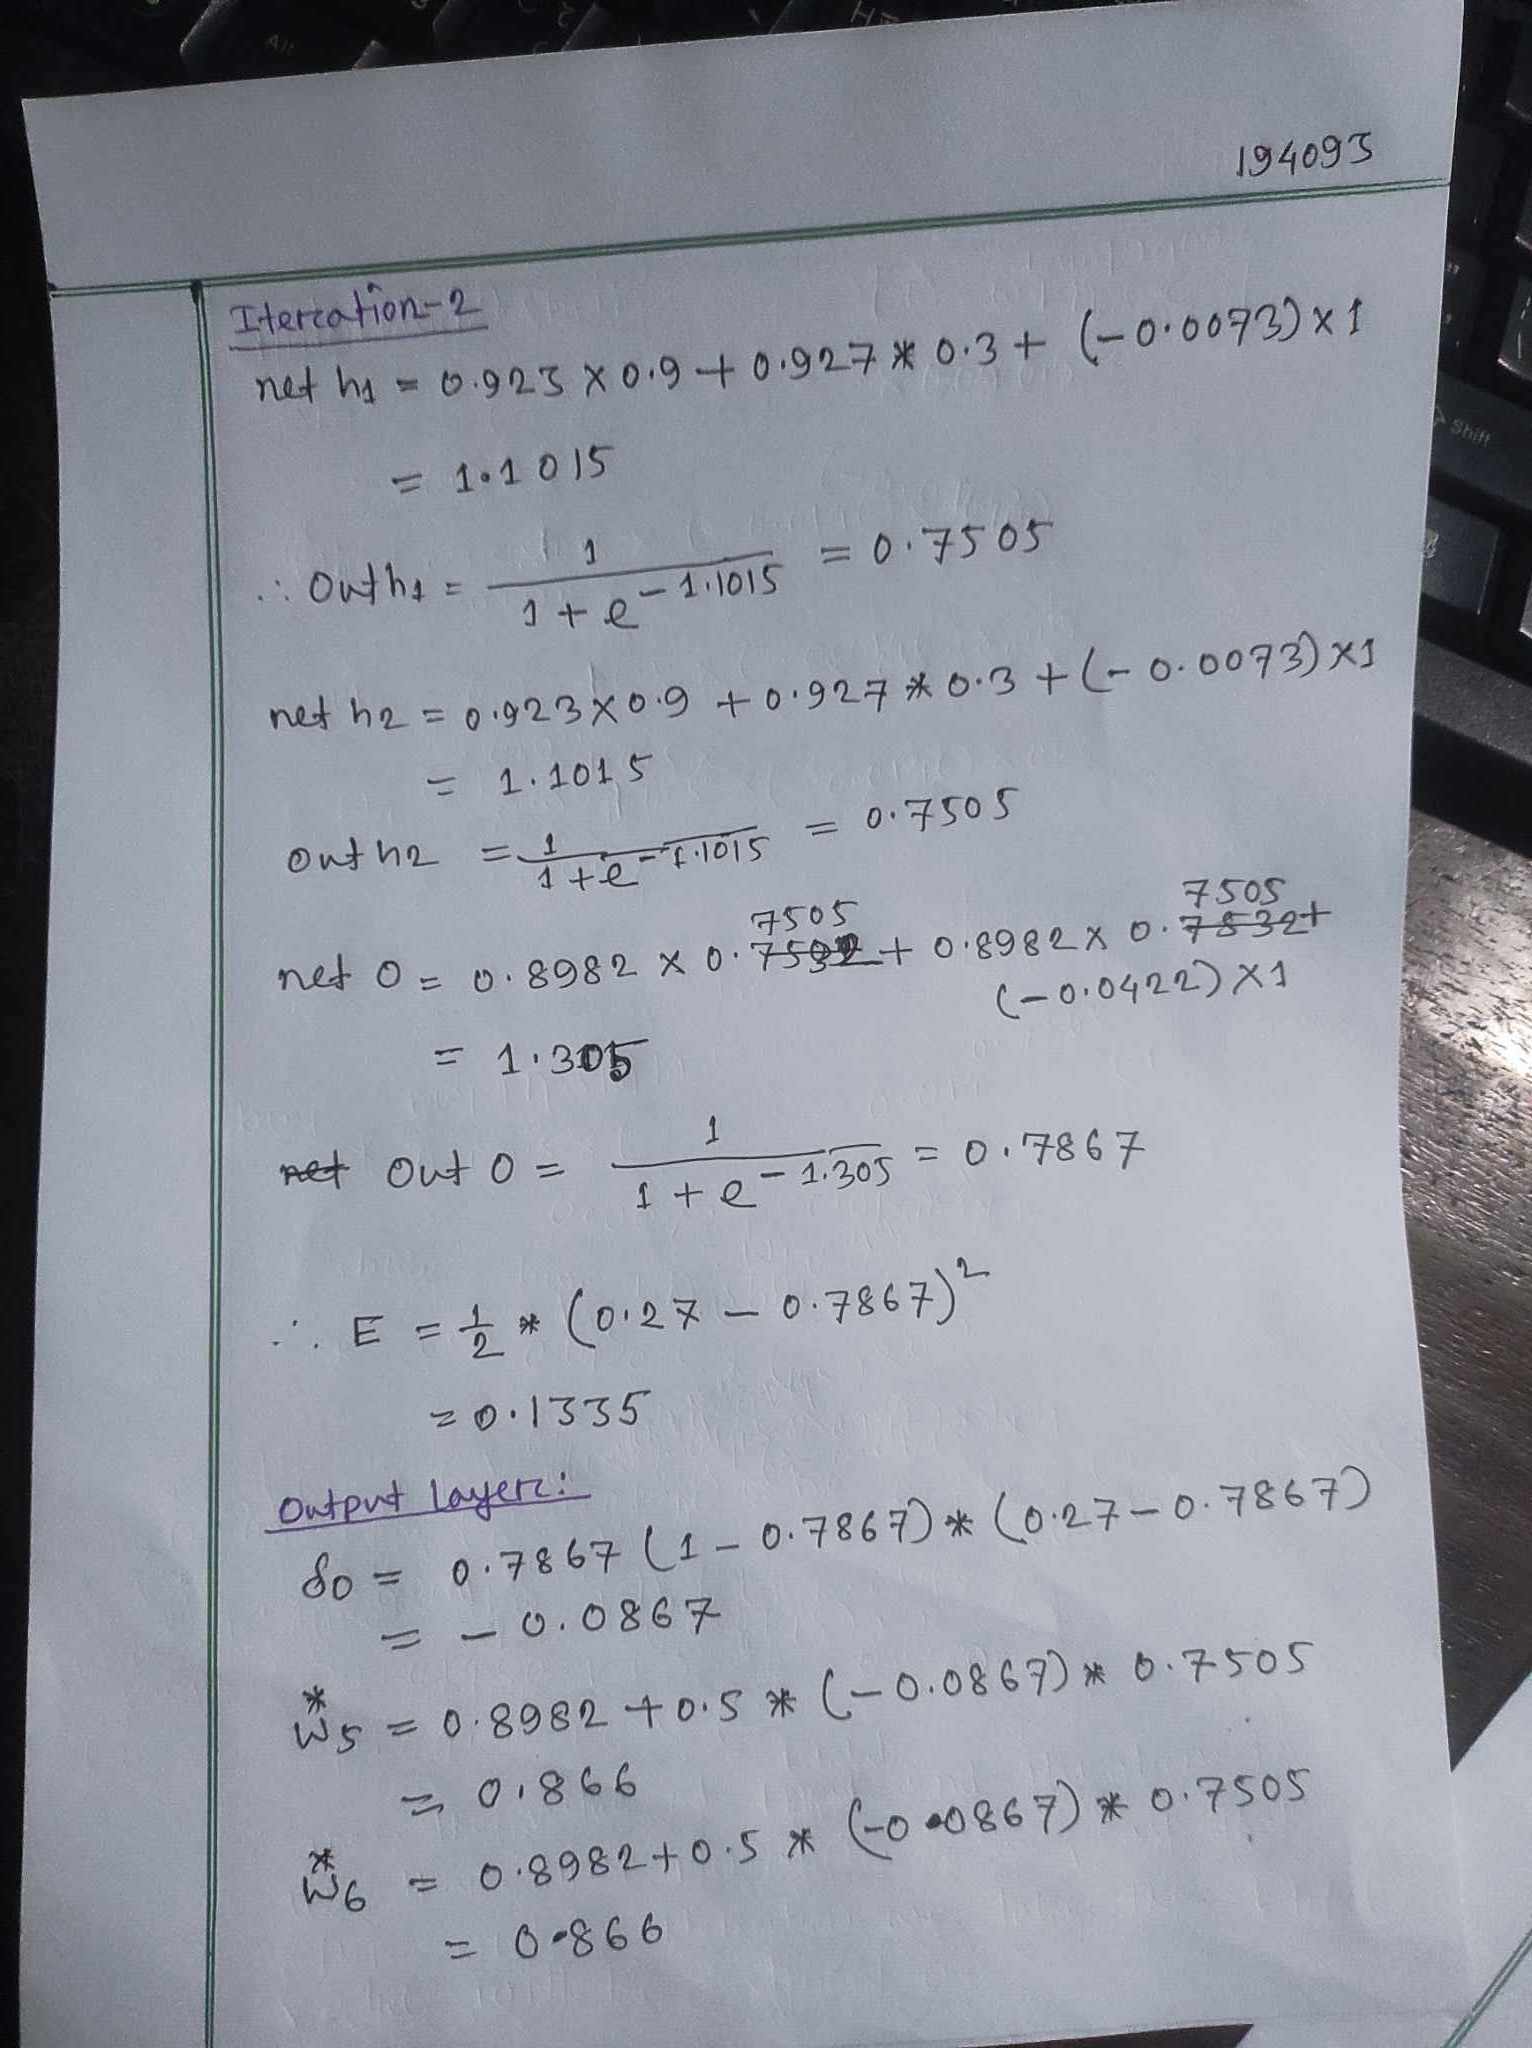 194093
Itercation-2
net h1 = 0.923 × 0.9 + 0.927 * 0.3 + (-0.0073) × 1
= 1.1015
∴ Out h1 = 1 / 1 + e^-1.1015 = 0.7505
net h2 = 0.923 × 0.9 + 0.927 * 0.3 + (-0.0073) × 1
= 1.1015
Out h2 = 1 / 1 + e^-1.1015 = 0.7505
7505 7505
net O = 0.8982 × 0. + 0.8982 × 0.7532 +
(-0.0422) × 1
= 1.305
net Out O = 1 / 1 + e^-1.305 = 0.7867
∴ E = 1/2 * (0.27 - 0.7867)^2
= 0.1335
Output layerc:
δo = 0.7867 (1 - 0.7867) * (0.27 - 0.7867)
= - 0.0867
w5* = 0.8982 + 0.5 * (-0.0867) * 0.7505
= 0.866
w6* = 0.8982 + 0.5 * (-0.0867) * 0.7505
= 0.866
Alt
Shift